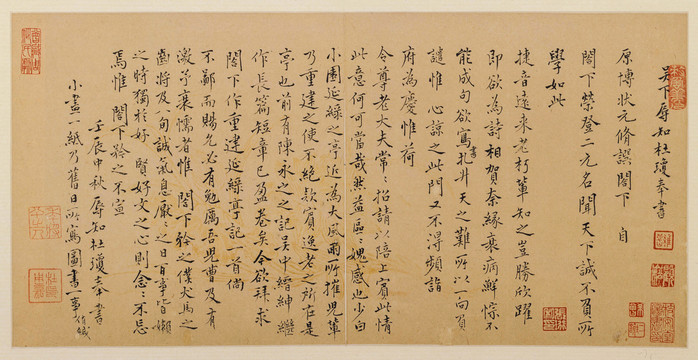 吴下辱知杜瓊奉書
原博狀元脩譔閣下 自
閣下榮登二元名聞天下誠不負所
學如此
捷音遠來老朽輩知之豈勝欣躍
即欲為詩相賀奈緣衰病鮮悰不
能成句欲寫書扎升天之難所以一向負
譴惟 心諒之此門又不得頻詣
府為慶惟荷
令尊老大夫常〻招請以陪上賓此情
此意何可當哉然益區〻媿感也少白
小圃延綠之亭近為大風雨所摧兒輩
乃重建之使不絕款賓逸老之所在是
亭也前有陳永之之記吳中縉紳繼
作長篇短章已盈卷矣今欲拜求
閣下作重建延綠亭記一首倘
不鄙而賜允必有勉厲吾兒曹及有
激于衰懦者惟 閣下矜之僕犬馬之
齒將及 旬誠氣息厭〻之日百事皆嬾
之時獨於好 賢好文之心則念〻不忘
焉惟 閣下矜之不宣
壬辰中秋辱知杜瓊奉書
小畫一紙乃舊日所寫圖書一事伯緘